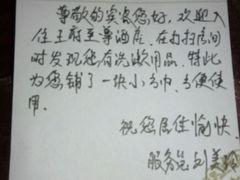 尊敬的宾客您好，欢迎入
住王府至尊酒店。在打扫房间
时发现您有洗漱用品。特此
为您铺了一块小方巾，方便使
用。
祝您居住愉快
服务员刘美